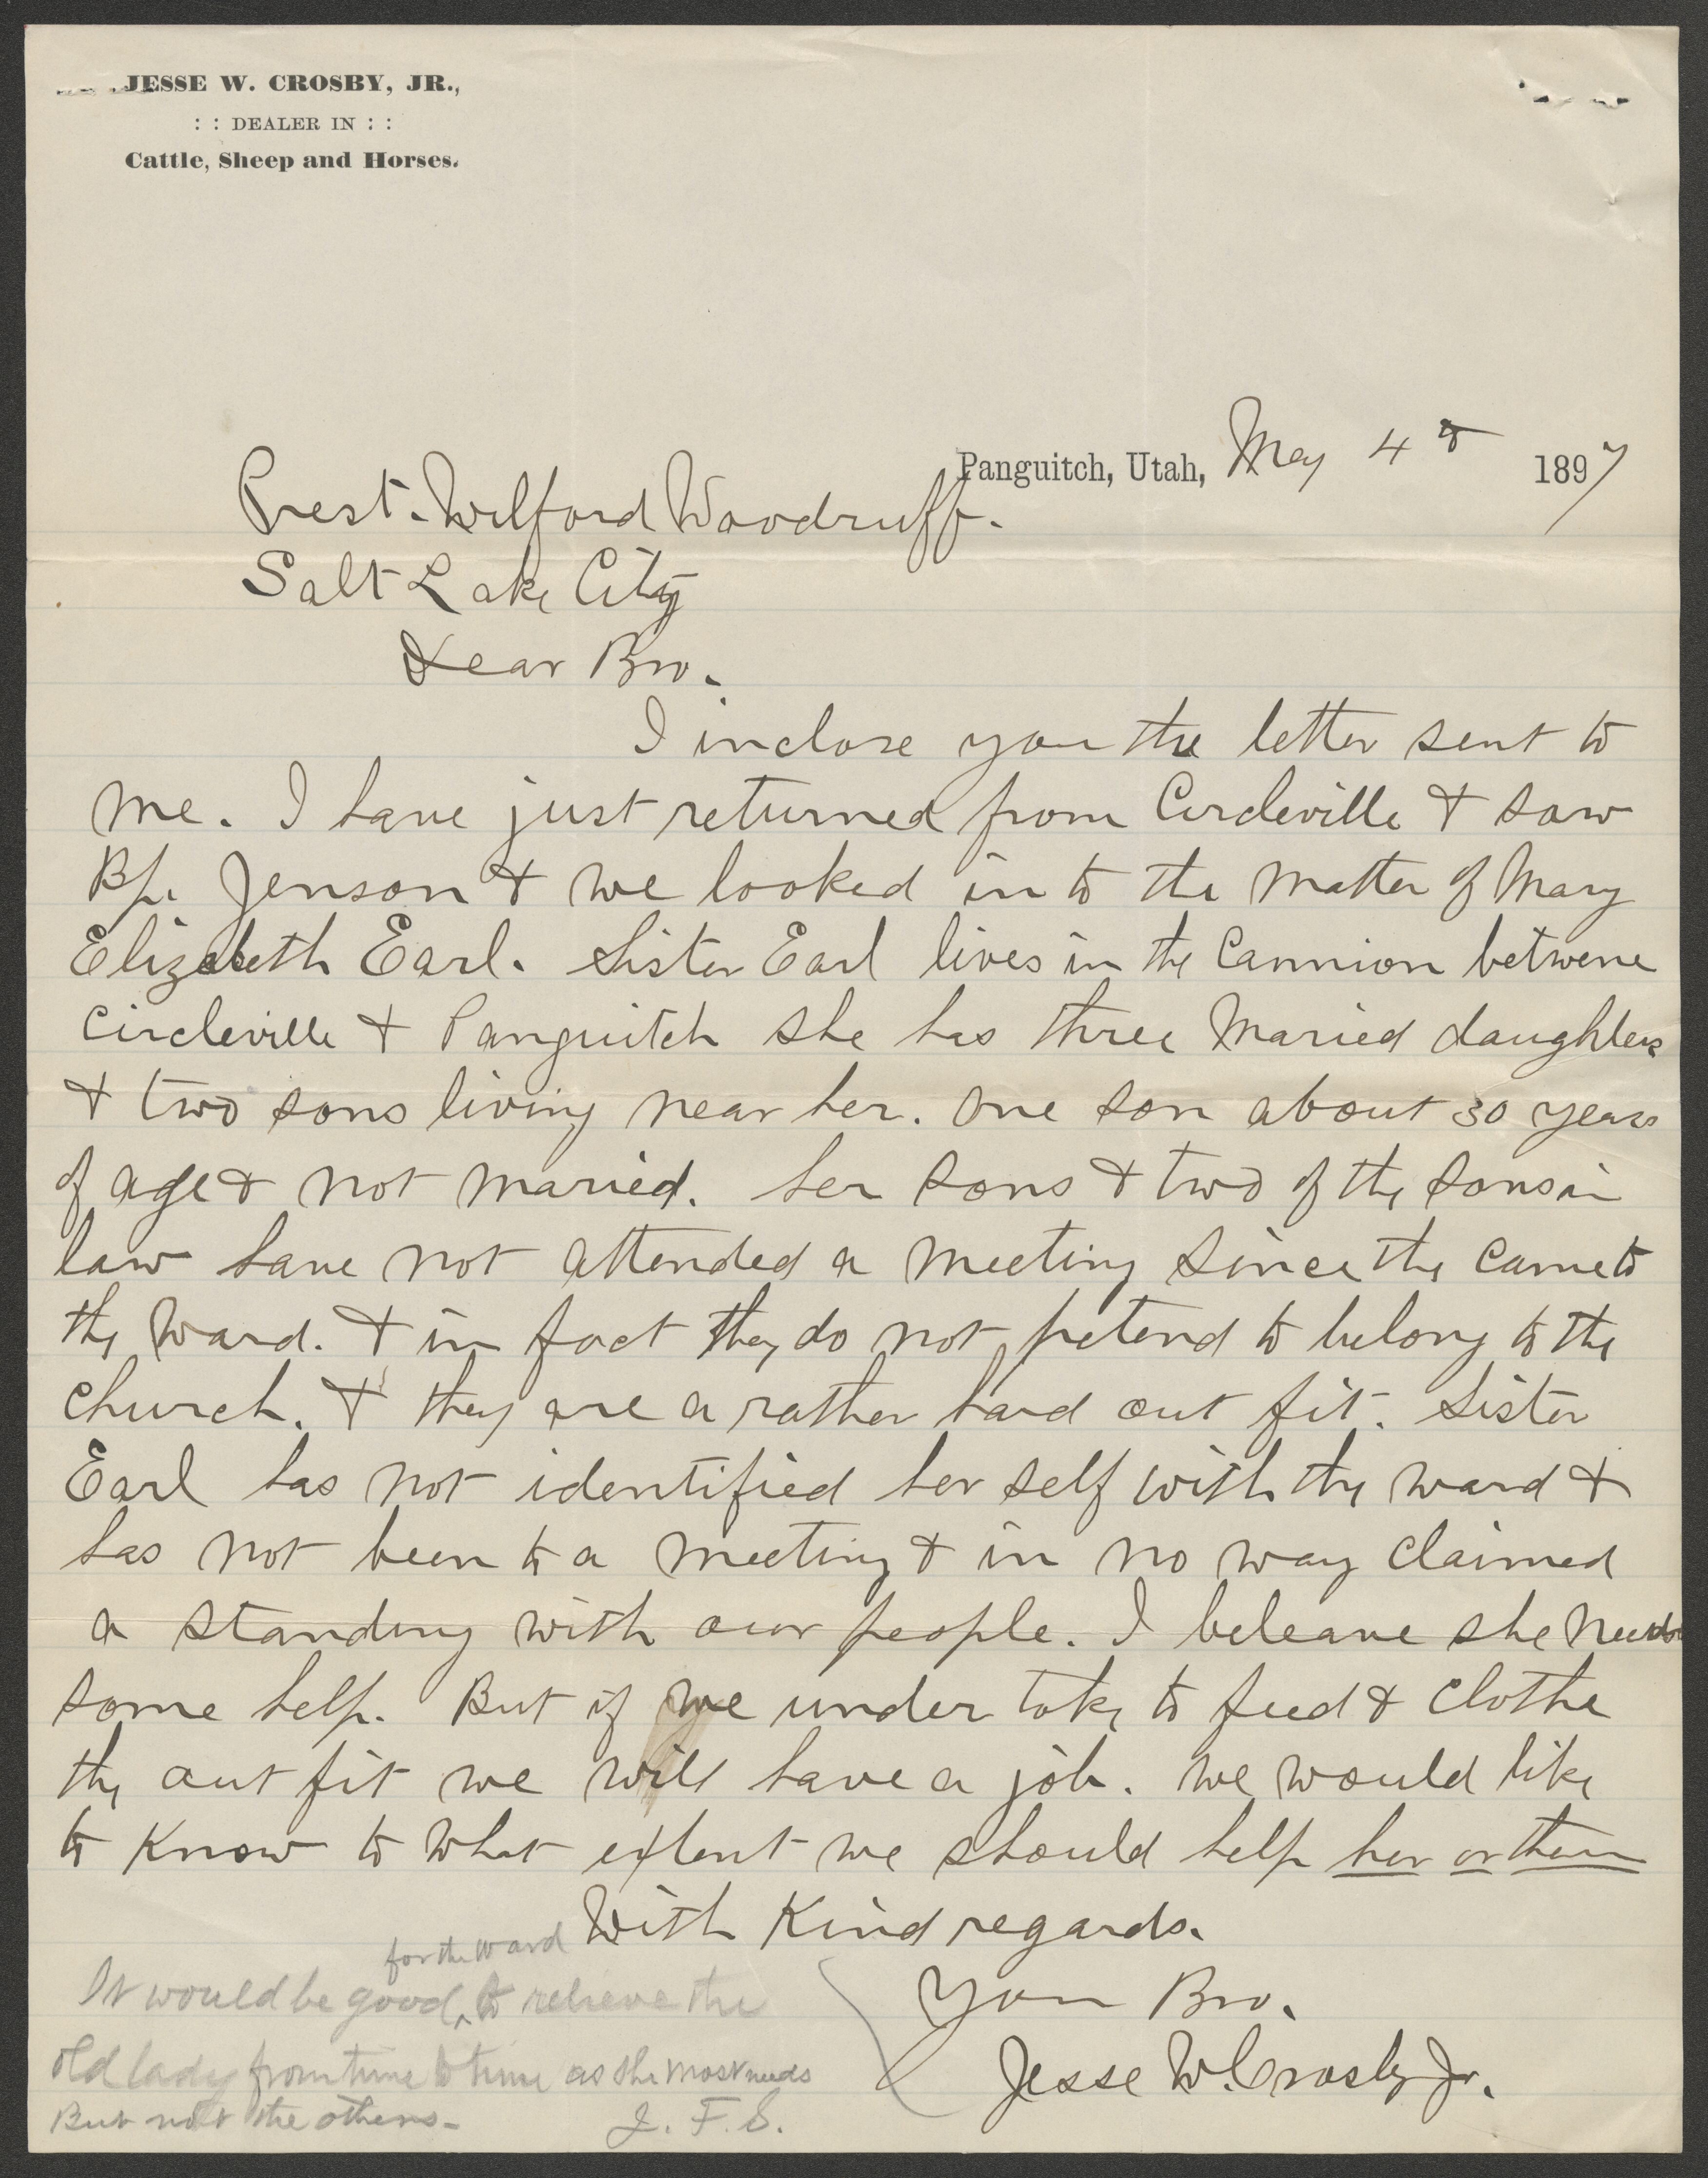 JESSE W. CROSBY, JR.,
: : DEALER IN : :
Cattle, Sheep and Horses.
Panguitch, Utah, May 4th 1897
Prest. Wilford Woodruff.
Salt Lake City
Dear Bro.
I inclose you the letter sent to
me. I have just returned from Circleville & saw
Bp. Jenson & we looked in to the matter of Mary
Elizabeth Earl. Sister Earl lives in the Cannion betwene
Circleville & Panguitch she has three Maried daughters
& two sons living near her. One son about 30 years
of age & not maried. her sons & two of the sons in
law have not attended a meeting since the came to
the ward. & in fact they do not pretend to belong to the
church. & they are a rather hard out fit. Sister
Earl has not identified her self with the ward &
has not been to a meeting & in no way claimed
a standing with our people. I beleave she needs
some help. But if we under take to feed & clothe
the out fit we will have a job. We would like
to know to what extent we should help her or them
With Kind regards.
Your Bro.
Jesse W. Crosby Jr.
It would be good ^ for the ward to relieve the
old lady from time to time as she most needs
But not the others-
J. F. S.